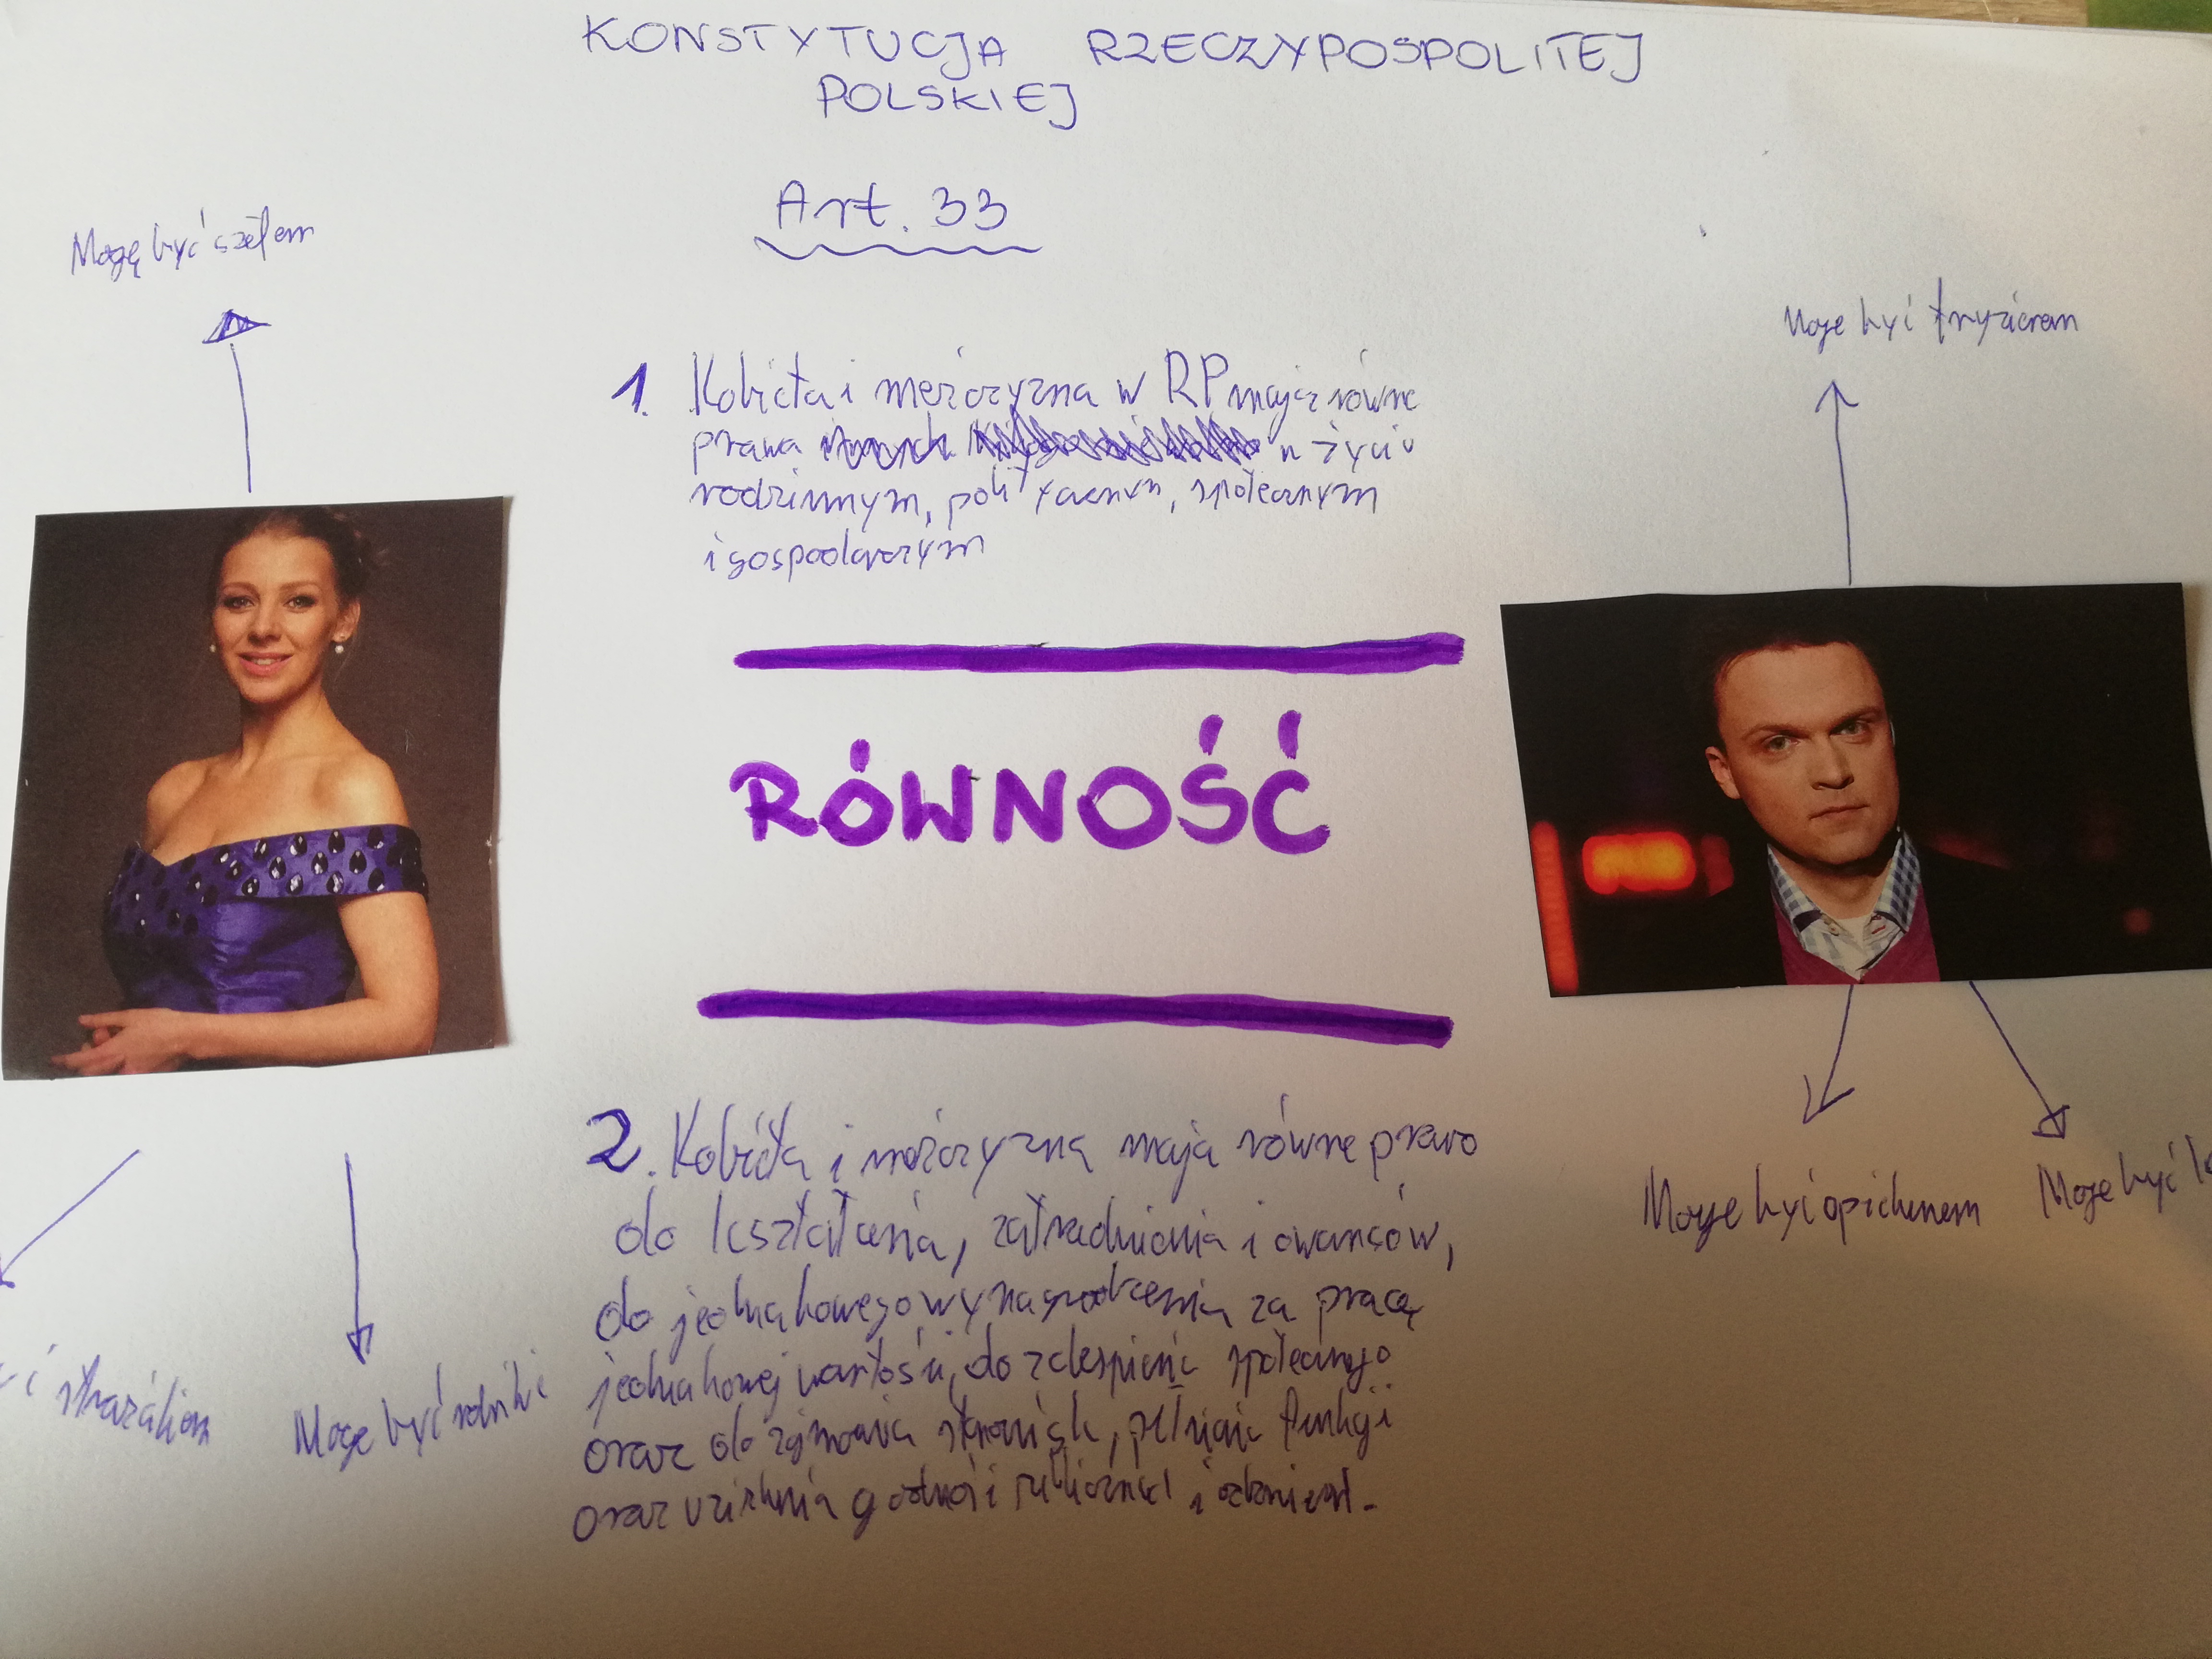 KONSTYTUCJA RZECZYPOSPOLITEJ
POLSKIEJ
Art. 33
Mogę być szefem
Mogę być fryzjerem
1. Kobieta i mężczyzna w RP mają równe
prawa w życiu
rodzinnym, politycznym, społecznym
i gospodarczym
RÓWNOŚĆ
2. Kobieta i mężczyzna mają równe prawo
do kształcenia, zatrudnienia i awansów,
do jednakowego wynagrodzenia za pracę
jednakowej wartości, do zabezpieczenia społecznego
oraz do zajmowania stanowisk, pełnienia funkcji
oraz uzyskania godności publicznych i odznaczeń.
strażakiem
Mogę być
Mogę być opiekunem
Mogę być